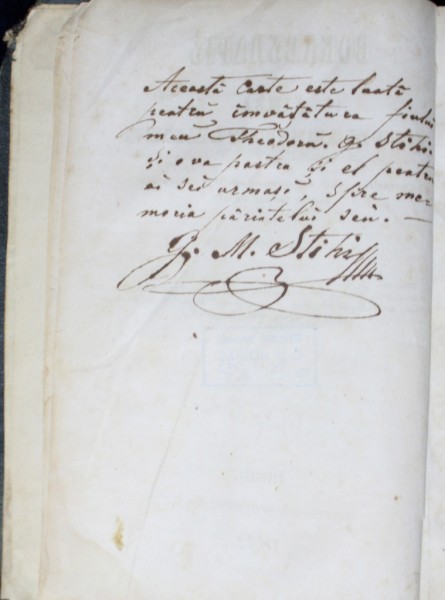 Această carte este luată
pentră învățătura fiului
meu Theodoră. G. Stihi.
și o va pastra și el pentru
ai sei urmași, spre me-
moria părintelui seu.
G. M. Stihi